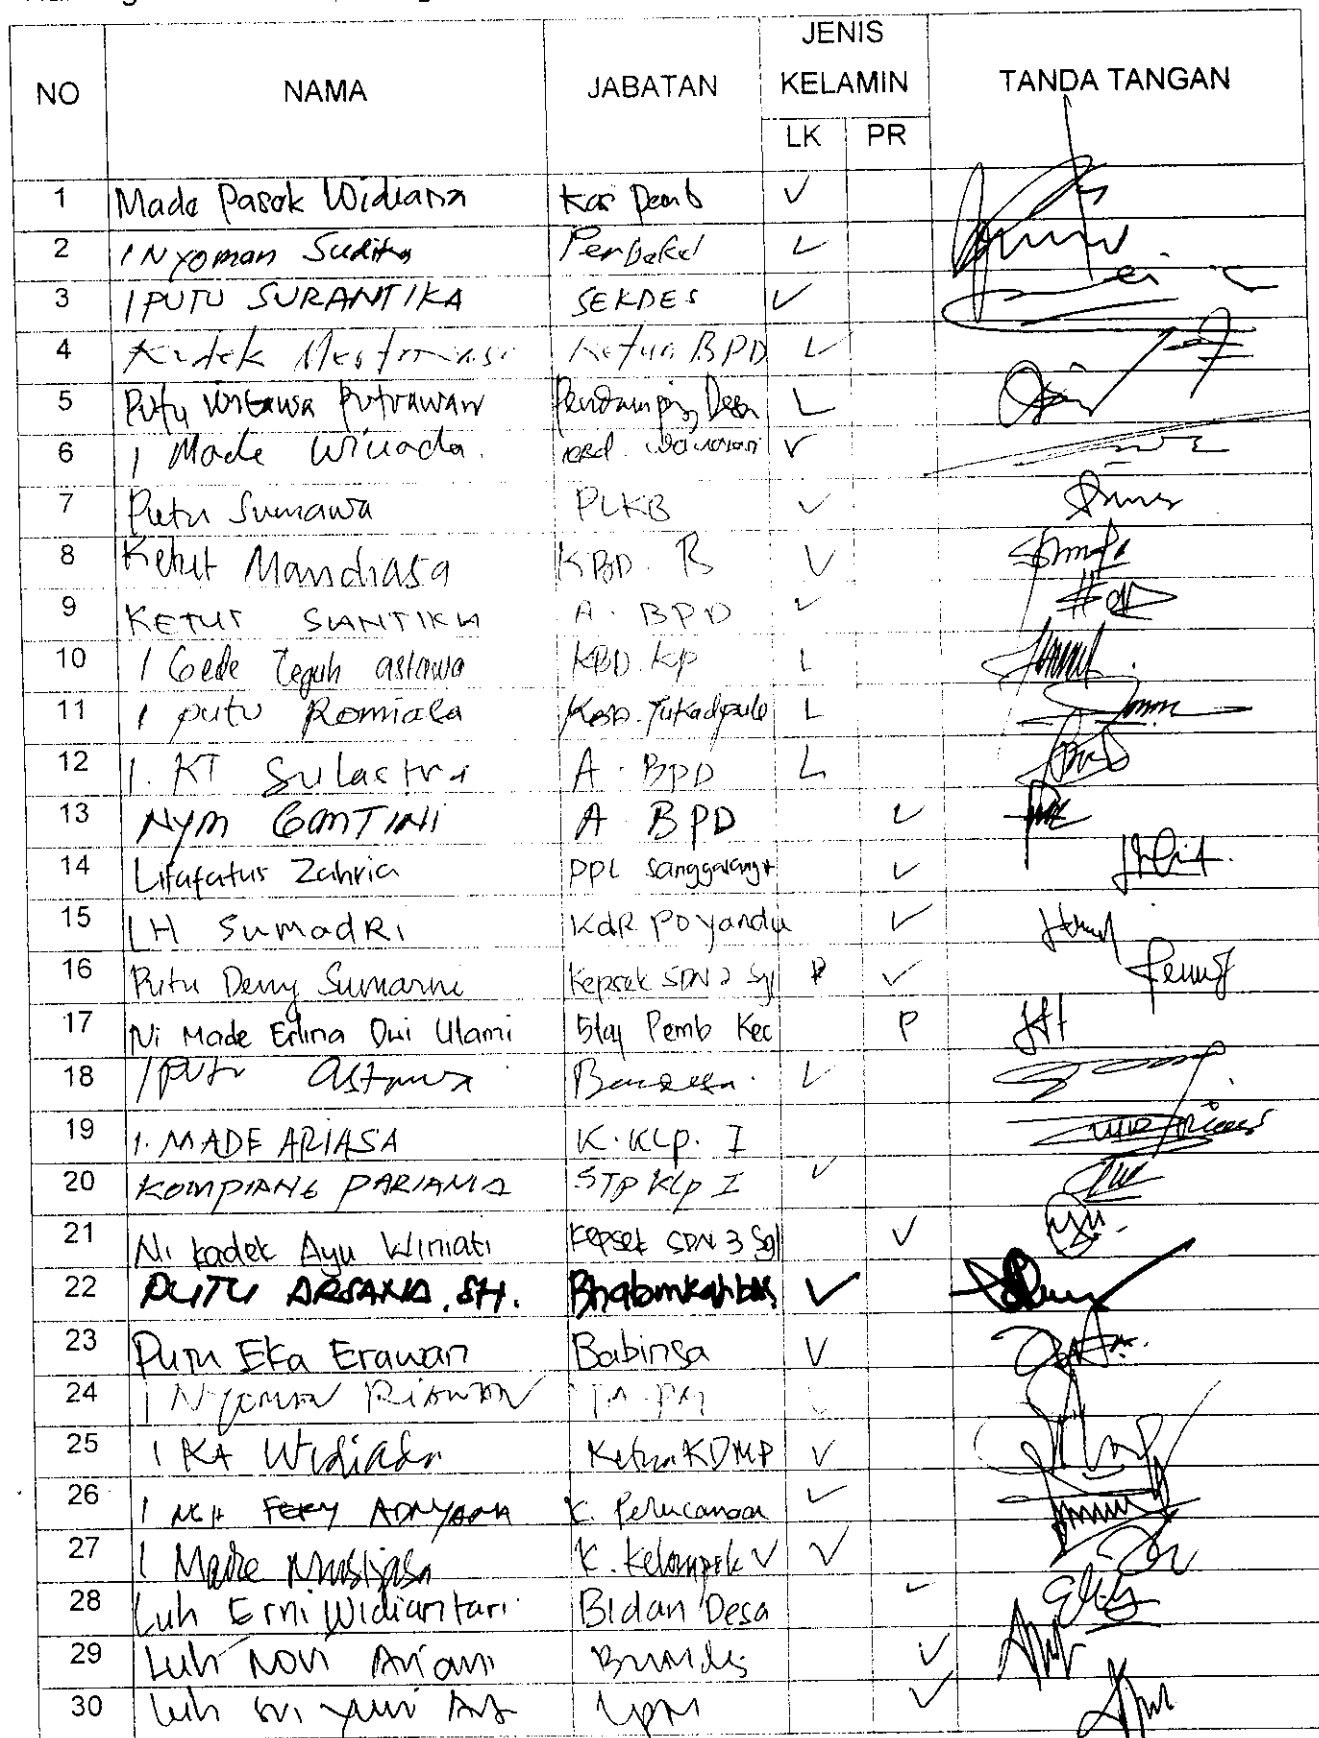 JENIS
NO NAMA JABATAN KELAMIN TANDA TANGAN
LK PR
1 Made Pasek Widiana Kasi Pemb ✓
2 I Nyoman Sudita Perbekel L
3 I PUTU SURANTIKA SEKDES ✓
4 Kadek Ketua BPD L
5 Putu Putrawan Pendamping Desa L
6 I Made Winada. ✓
7 Putu Sumawa PLKB ✓
8 Ketut Mandiasa KBD. B ✓
9 KETUT SUANTIKA A. BPD ✓
10 I Gede Teguh astawa KBD. Kp L
11 I putu Romiala KBD. Tukadpule L
12 I. KT Sulastra A. BPD L
13 NYM GANTINI A BPD ✓
14 Litafatus Zahria PPL Sanggalangit ✓
15 LH SumadRi KdR Poyandu ✓
16 Putu Deny Sumarni Kepsek SDN 2 Sgl P ✓
17 Ni Made Erlina Dwi Utami Staf Pemb Kec P
18 I Putu Astawa L
19 I. MADE ARIASA K. KLp. I
20 KOMPIANG PARIANA STP Klp I ✓
21 Ni Kadek Ayu Winiati Kepsek SDN 3 Sgl ✓
22 PUTU ARSANA, SH. Bhabinkatibmas ✓
23 Putu Eka Erawan Babinsa ✓
24 I Nyoman Riawan ✓
25 I KA Widiada Ketua KDMP ✓
26 I NGH FERY ADNYANA K. Perencanaan ✓
27 I Made K. Kelompok ✓ ✓
28 Luh Erni Widiantari Bidan Desa ✓
29 Luh Novi Ariani Bumdes ✓
30 Luh Sri ✓